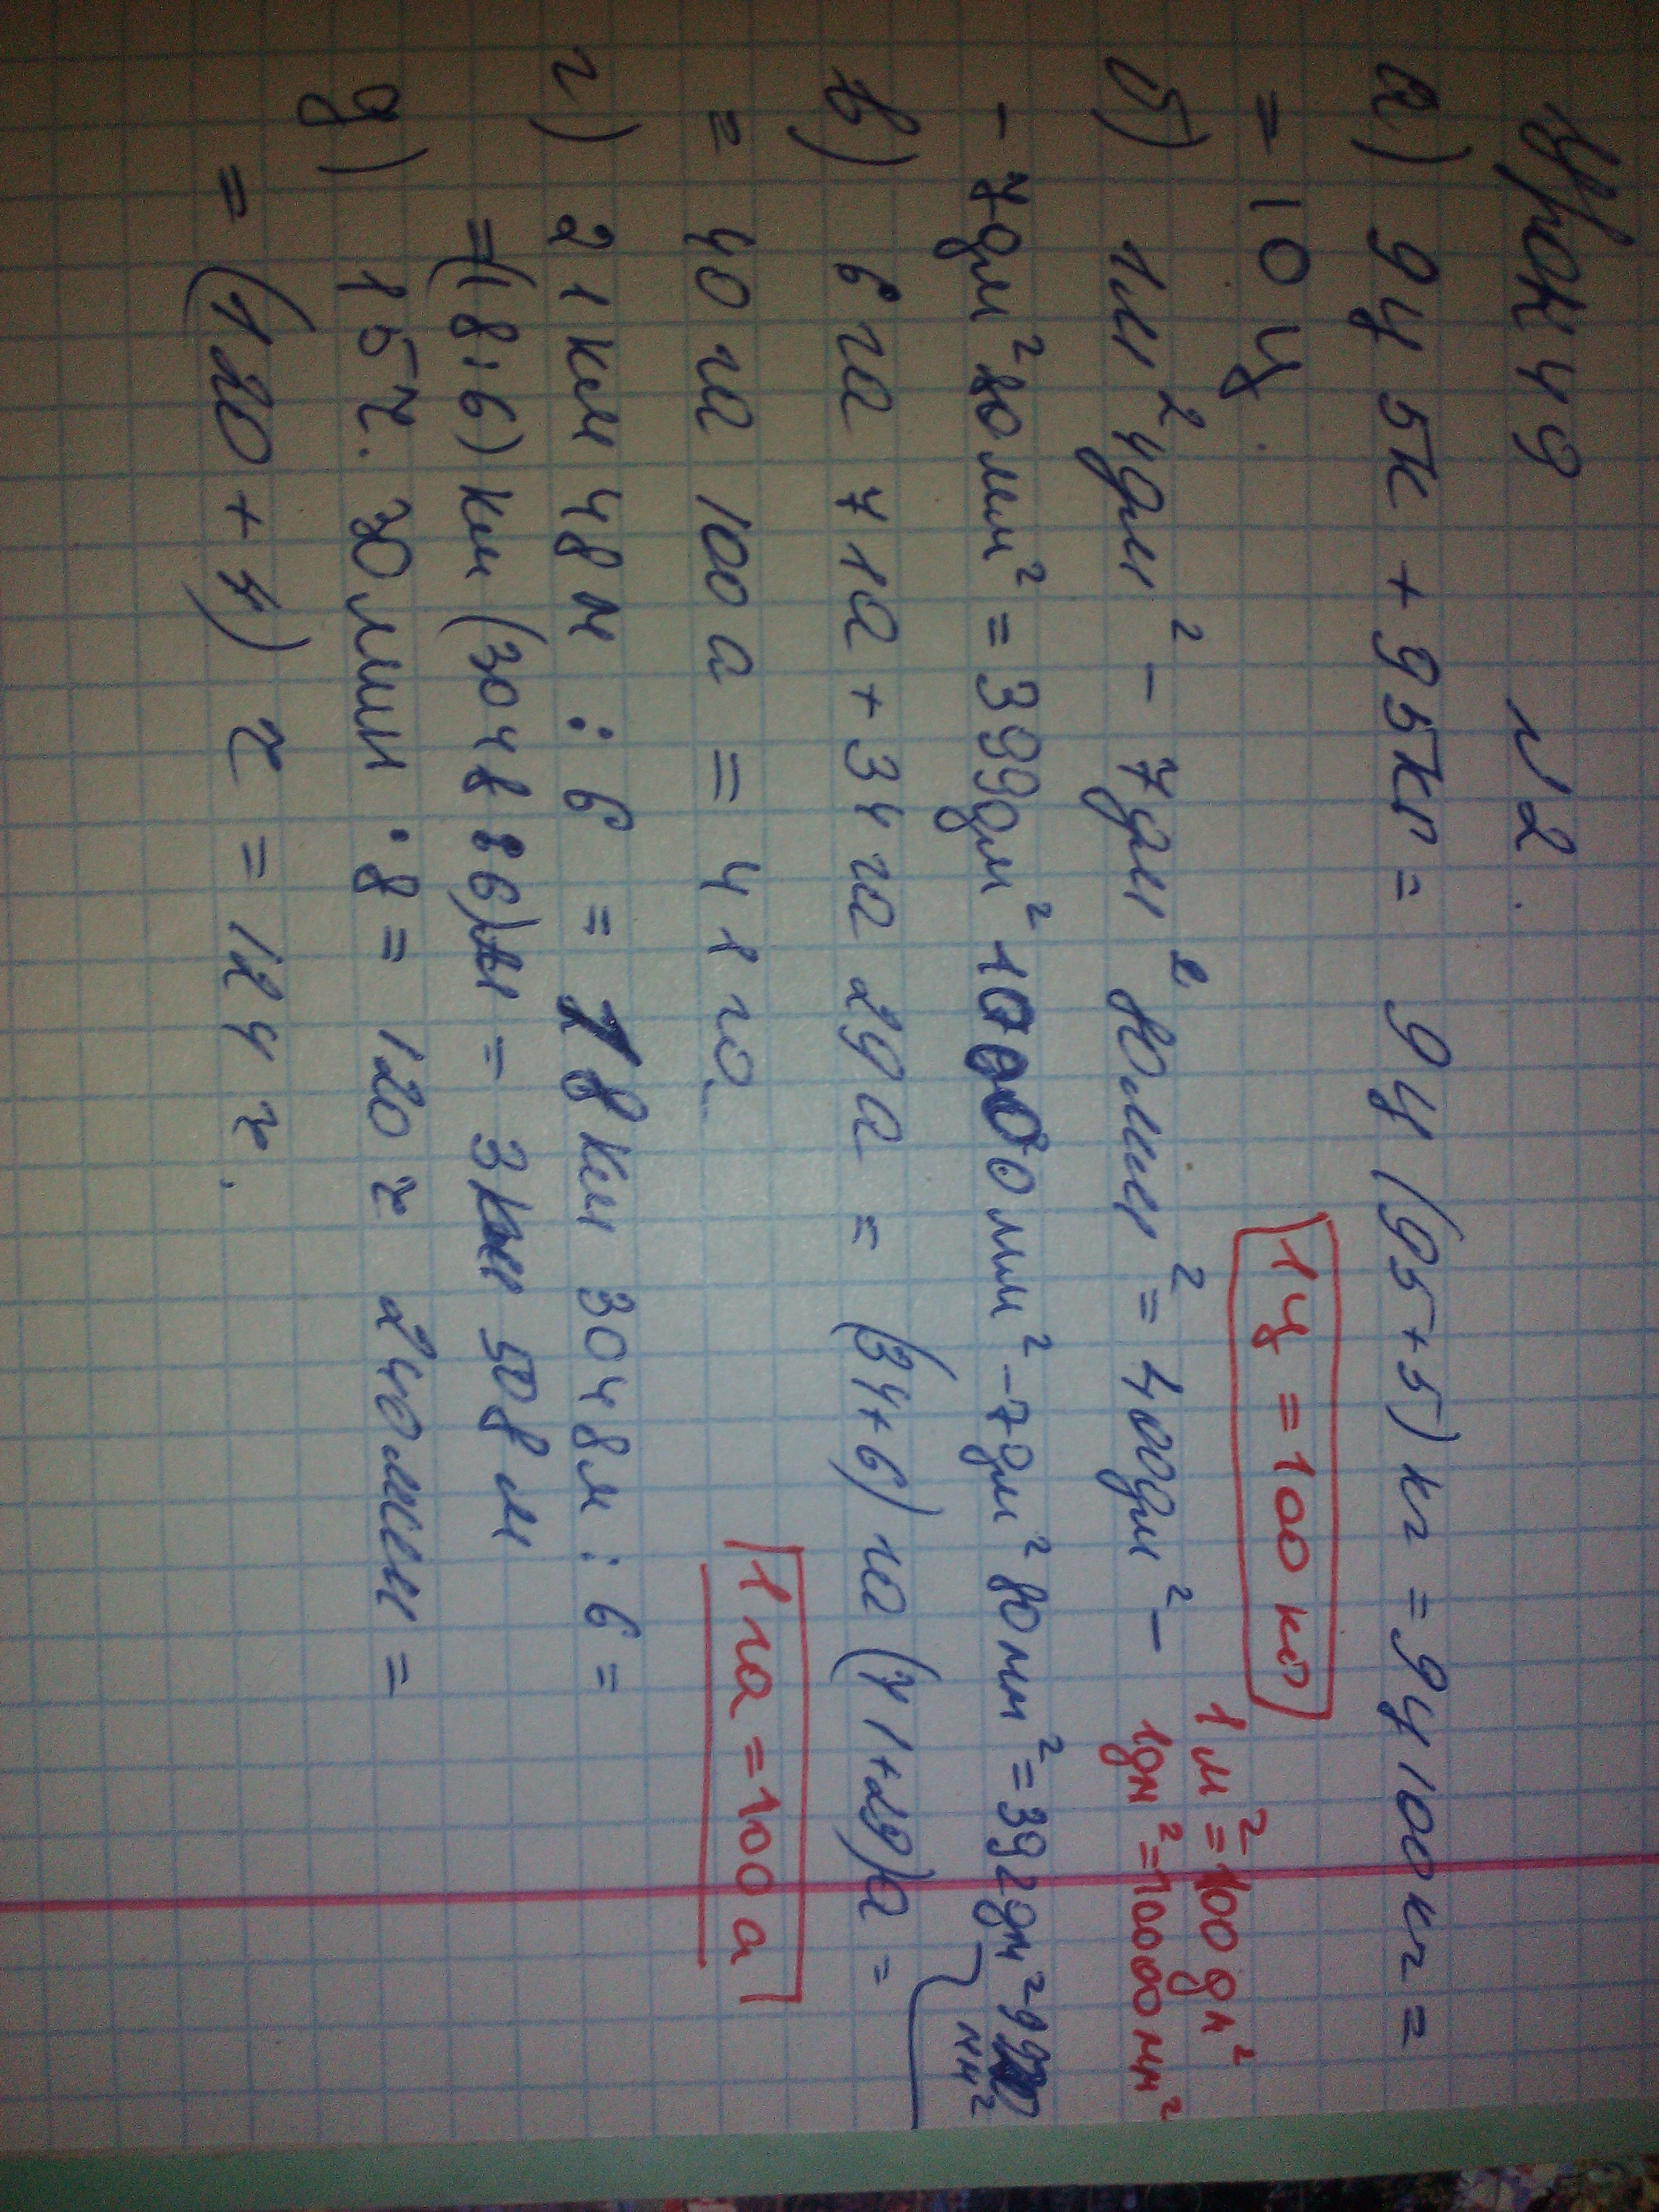 Урок 49 №2.
а) 9ц 5к + 95кг = 9ц (95+5) кг = 9ц 100кг =
= 10 ц.
1ц = 100 кг
б) 1м² 4дм² - 7дм² 80мм² = 400дм² -
1м² = 100 дм²
1дм² = 10000 мм²
- 7дм² 80мм² = 399дм² 10000мм² - 7дм² 80мм² = 392дм² 9920
мм²
в) 6 га 71а + 34 га 29а = (34+6) га (71+29)а =
= 40 га 100 а = 41 га.
1 га = 100 а
г) 21км 48м : 6 = 18км 3048м : 6 =
=(18:6) км (3048:6)м = 3км 508м
д) 15ч. 30мин · 8 = 120ч 240мин =
= (120 + 4) ч = 124 ч.